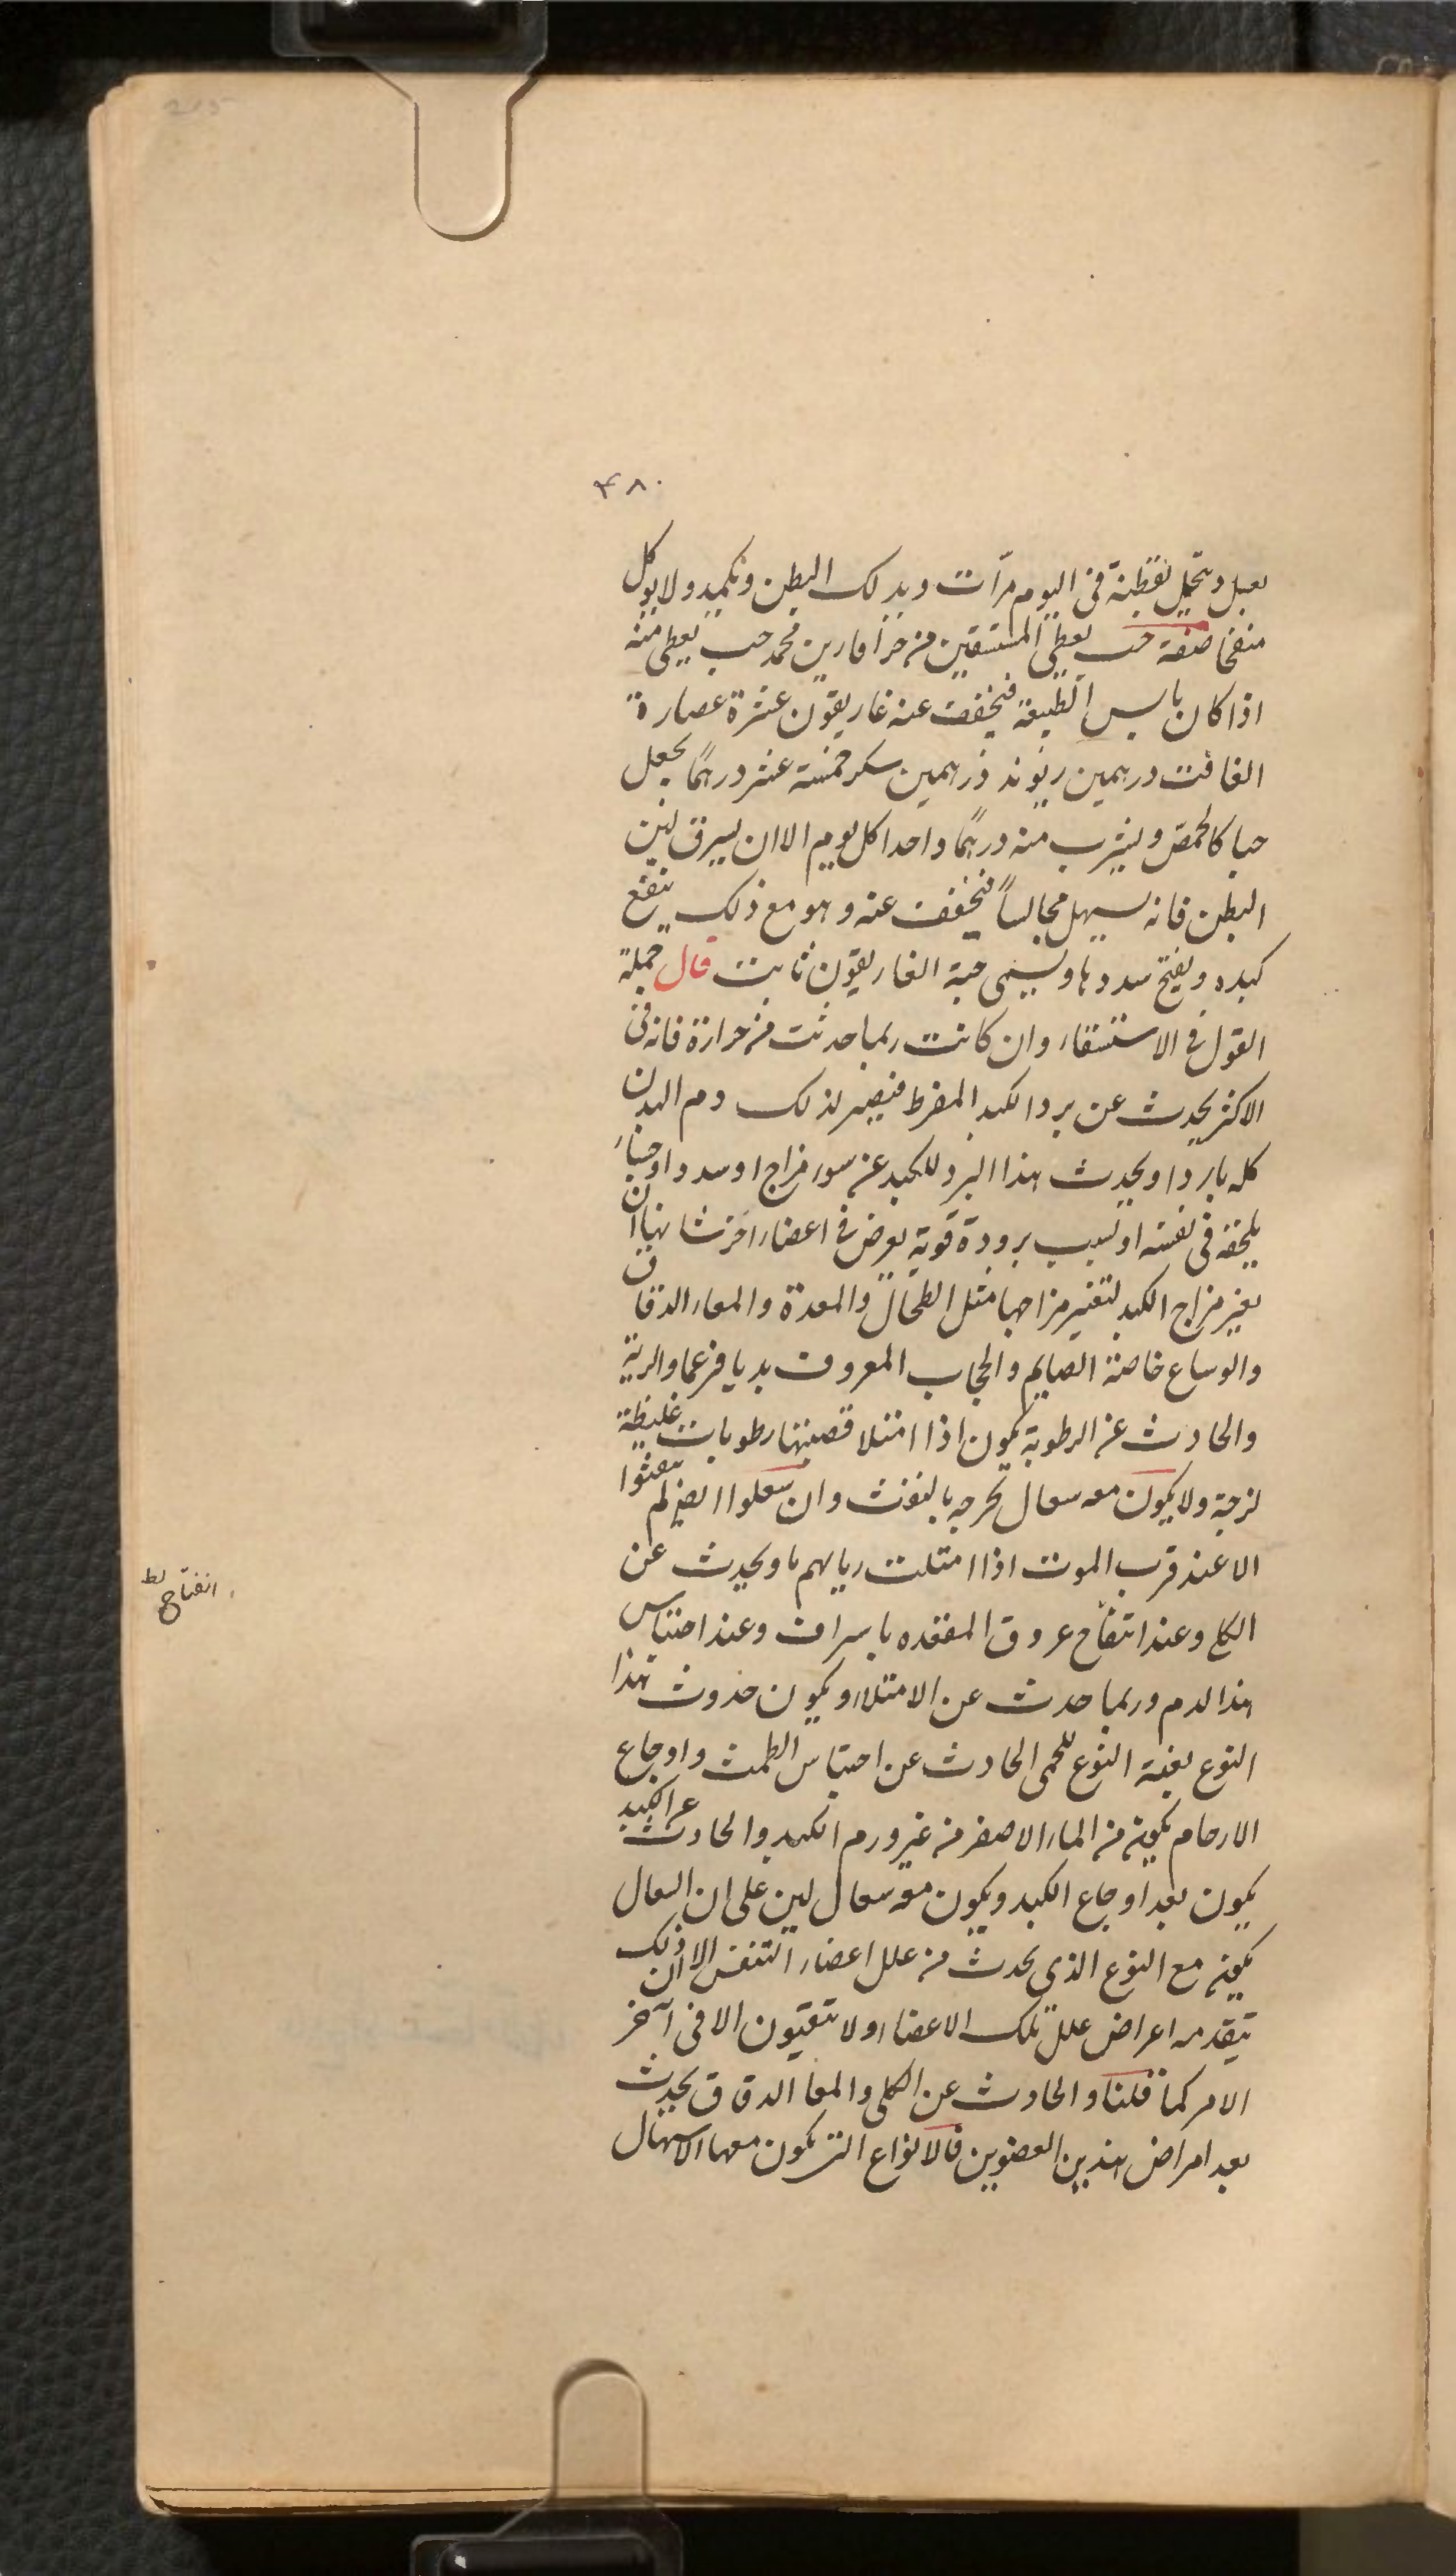 215
۴۸۰
بعسل ويتحمل بقطنة في اليوم مرّات ويدلك البطن ويكمد ولا يوكل
منفخا صفة حب يعطي المستسقين من خراقارين محمد حب يعطى منه
اذا كان يابس الطبيعة فيخفف عنه غاريقون عشرة عصارة
الغافت درهمين ريوند درهمين سكر خمسة عشر درهمًا يجعل
حبا كالحمص ويشرب منه درهمًا واحدا كل يوم الا ان يسرق لين
البطن فانه يسهل مجالسًا فيخفف عنه وهو مع ذلك ينفع
كبده ويفتح سددها ويسمى حبة الغاريقون ثابت قال جملة
القول في الاستسقاء وان كانت ربما حدثت من حرارة فانه في
الاكثر يحدث عن برد الكبد المفرط فيصير لذلك دم البدن
كله باردا ويحدث هذا البرد للكبد عن سوء مزاج او سدد او جساء
يلحقه في نفسه او بسبب برودة قوية يعرض في اعضاء اخر شانها ان
يغير مزاج الكبد لتغير مزاجها مثل الطحال والمعدة والمعاء الدقاق
والوساع خاصة الصايم والحجاب المعروف بديافرغما والرية
والحادث عن الرطوبة يكون اذا امتلا قصبتها رطوبات غليظة
لزجة ولا يكون معه سعال يخرجه بالنفث وان سعلوا ايضا لم ينفثوا
الا عند قرب الموت اذا امتلت رياهم ما ويحدث عن
الكلى وعند انتفاح عروق المقعده باسراف وعند احتباس
هذا الدم وربما حدث عن الامتلاء ويكون حدوث هذا
النوع بغتة النوع للحمى الحادث عن احتباس الطمث واوجاع
الارحام يكون من الماء الاصفر من غير ورم الكبد والحادث عن الكبد
يكون بعد اوجاع الكبد ويكون معه سعال لين على ان السعال
يكون مع النوع الذي يحدث من علل اعضاء التنفس الا ان ذلك
يتقدمه اعراض علل تلك الاعضاء ولا تتقيون الا في آخر
الامر كما قلنا والحادث عن الكلى والمعا الدقاق يحدث
بعد امراض هذين العضوين فالانواع التي يكون معها الاسهال
انفتاح لط